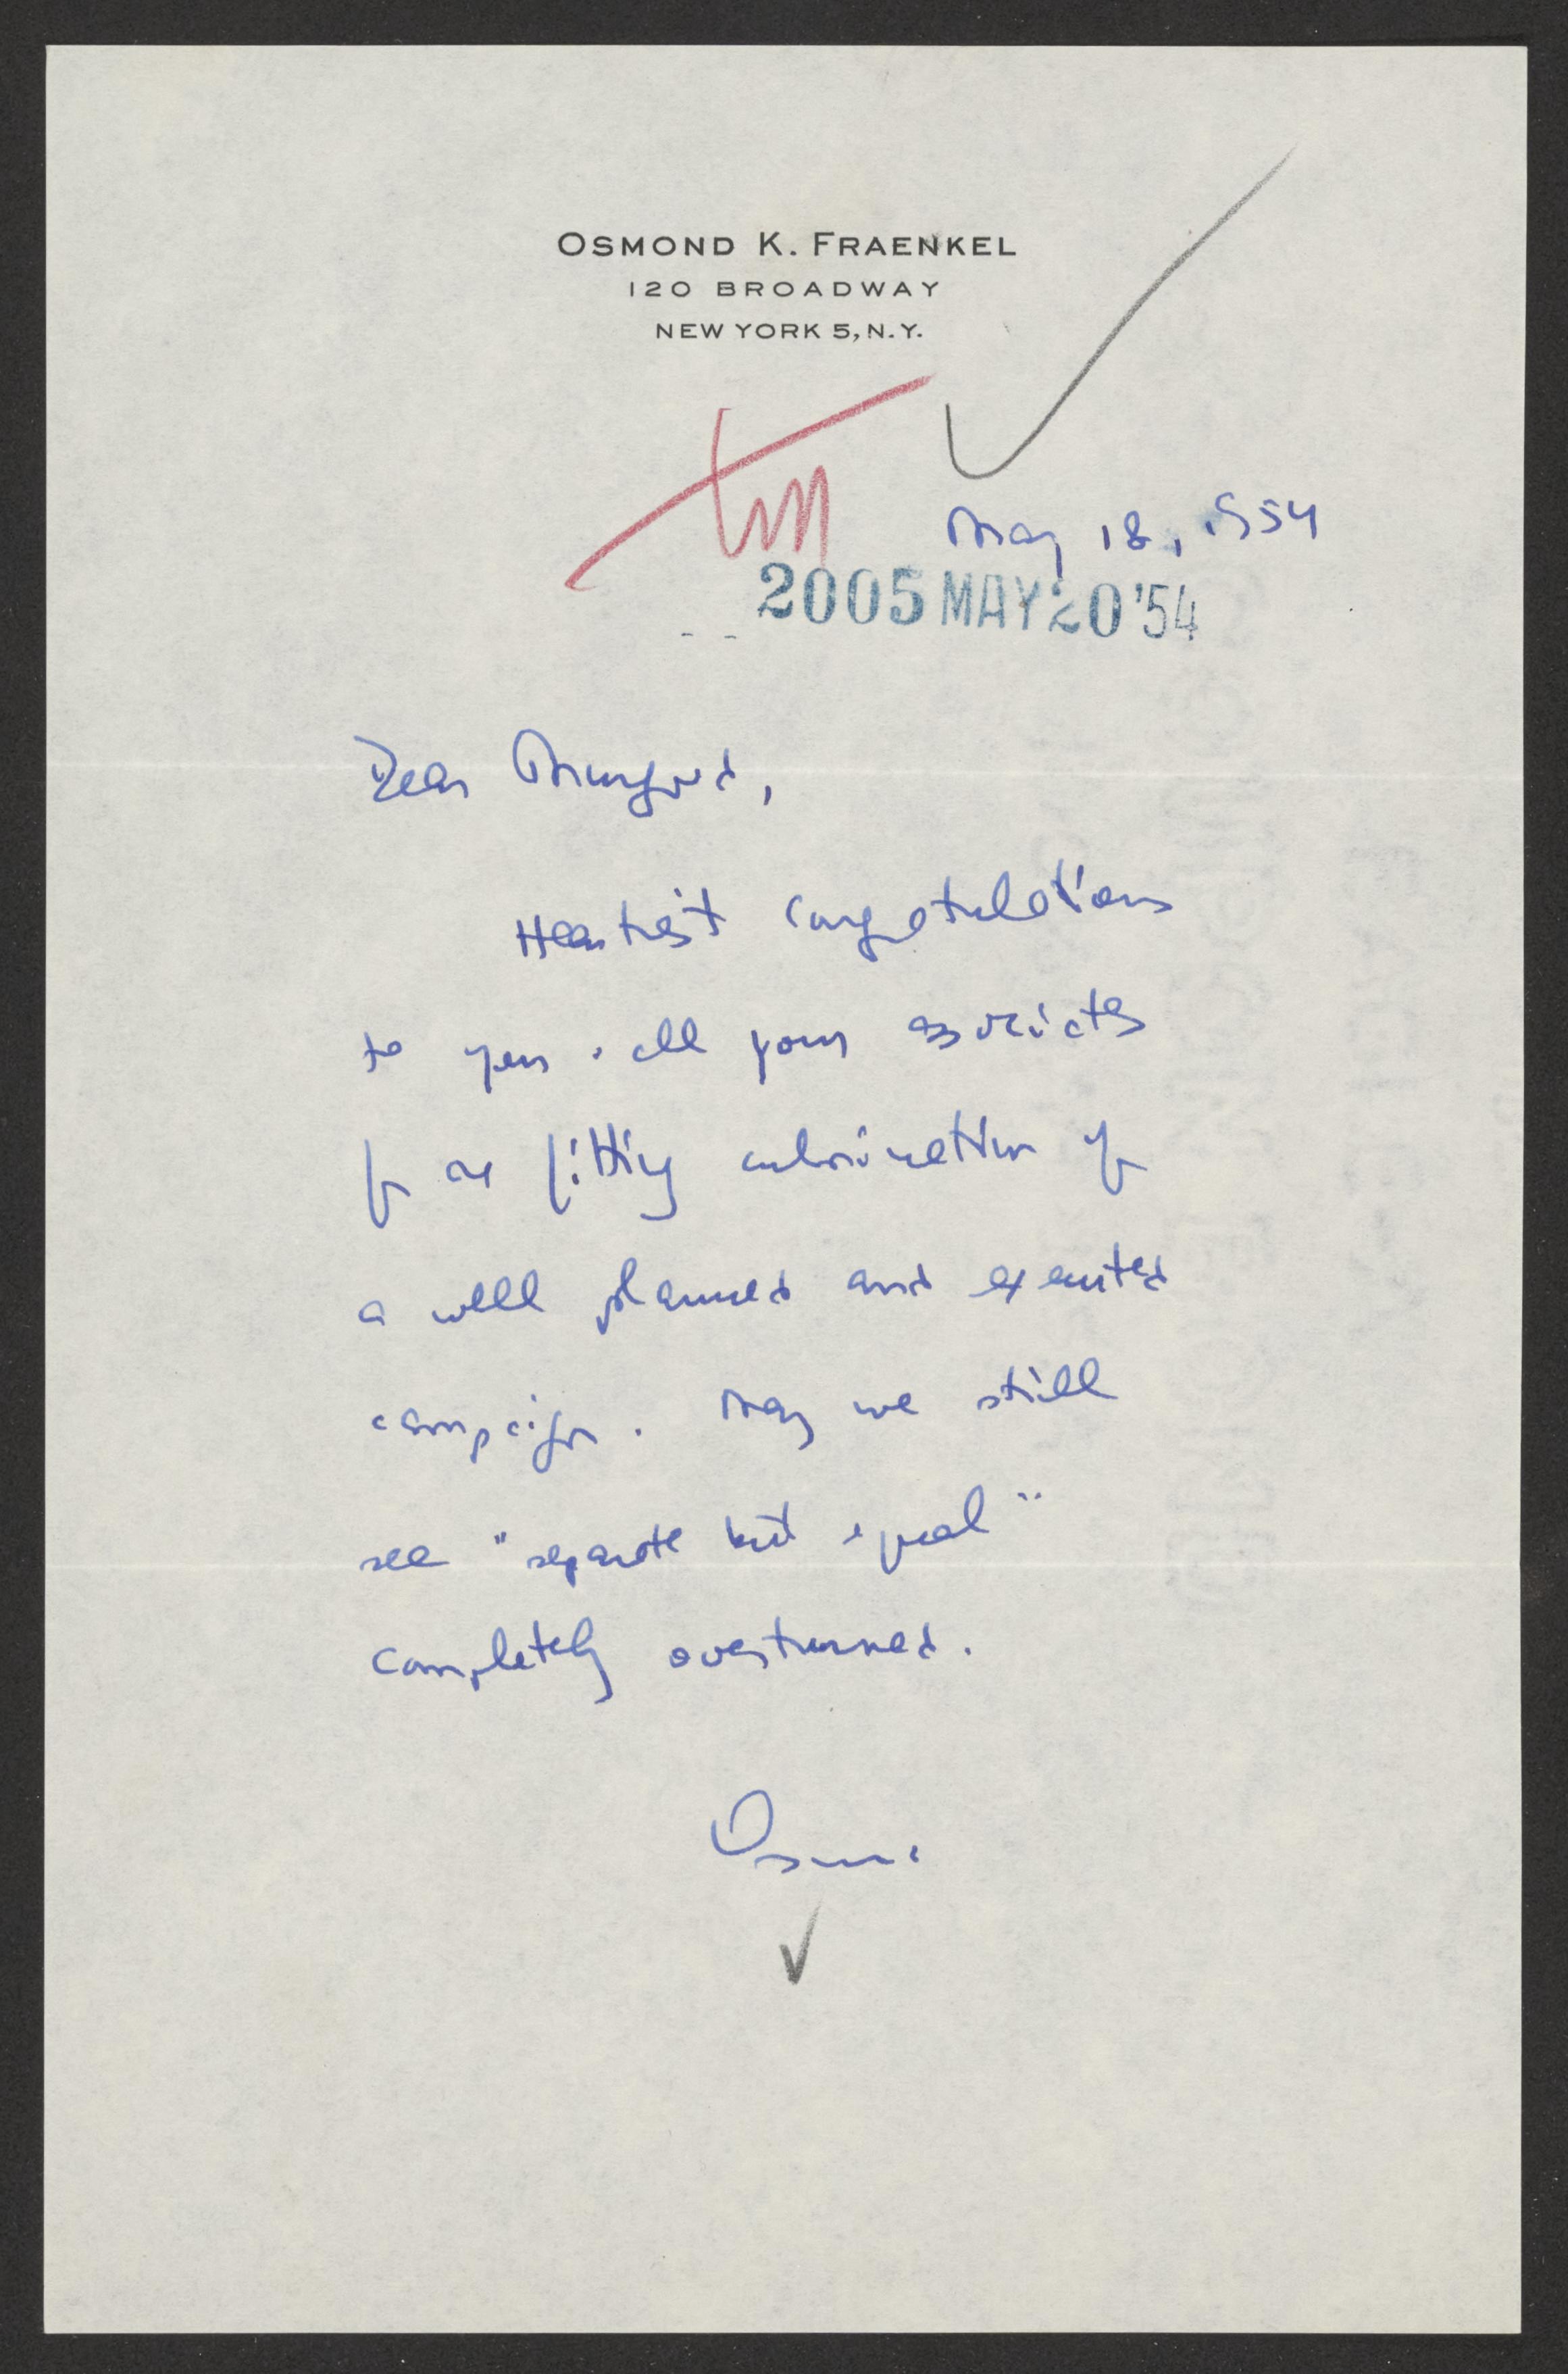 OSMOND K. FRAENKEL
120 BROADWAY
NEW YORK 5, N.Y.
TM
May 18, 1954
2005 MAY 20 '54
Dear Thurgood,
Heartiest congratulations
to you & all your associates
for the fitting culmination of
a well planned and executed
campaign. May we still
see "separate but equal"
completely overturned.
Osmond